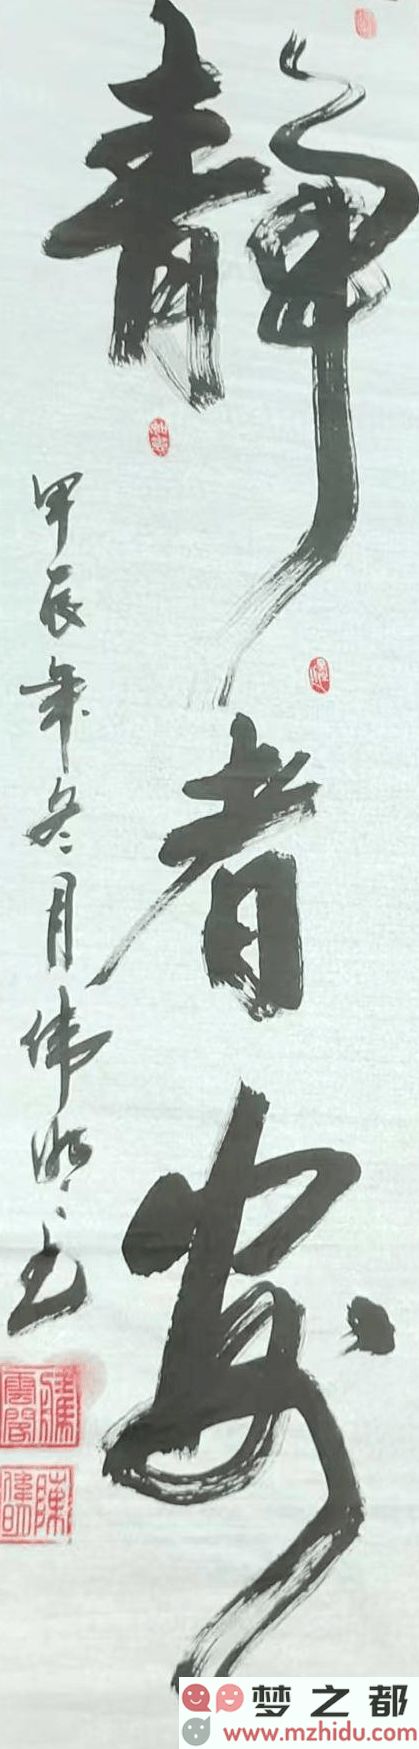 靜者安
甲辰年冬月伟明书
梦之都
www.mzhidu.com